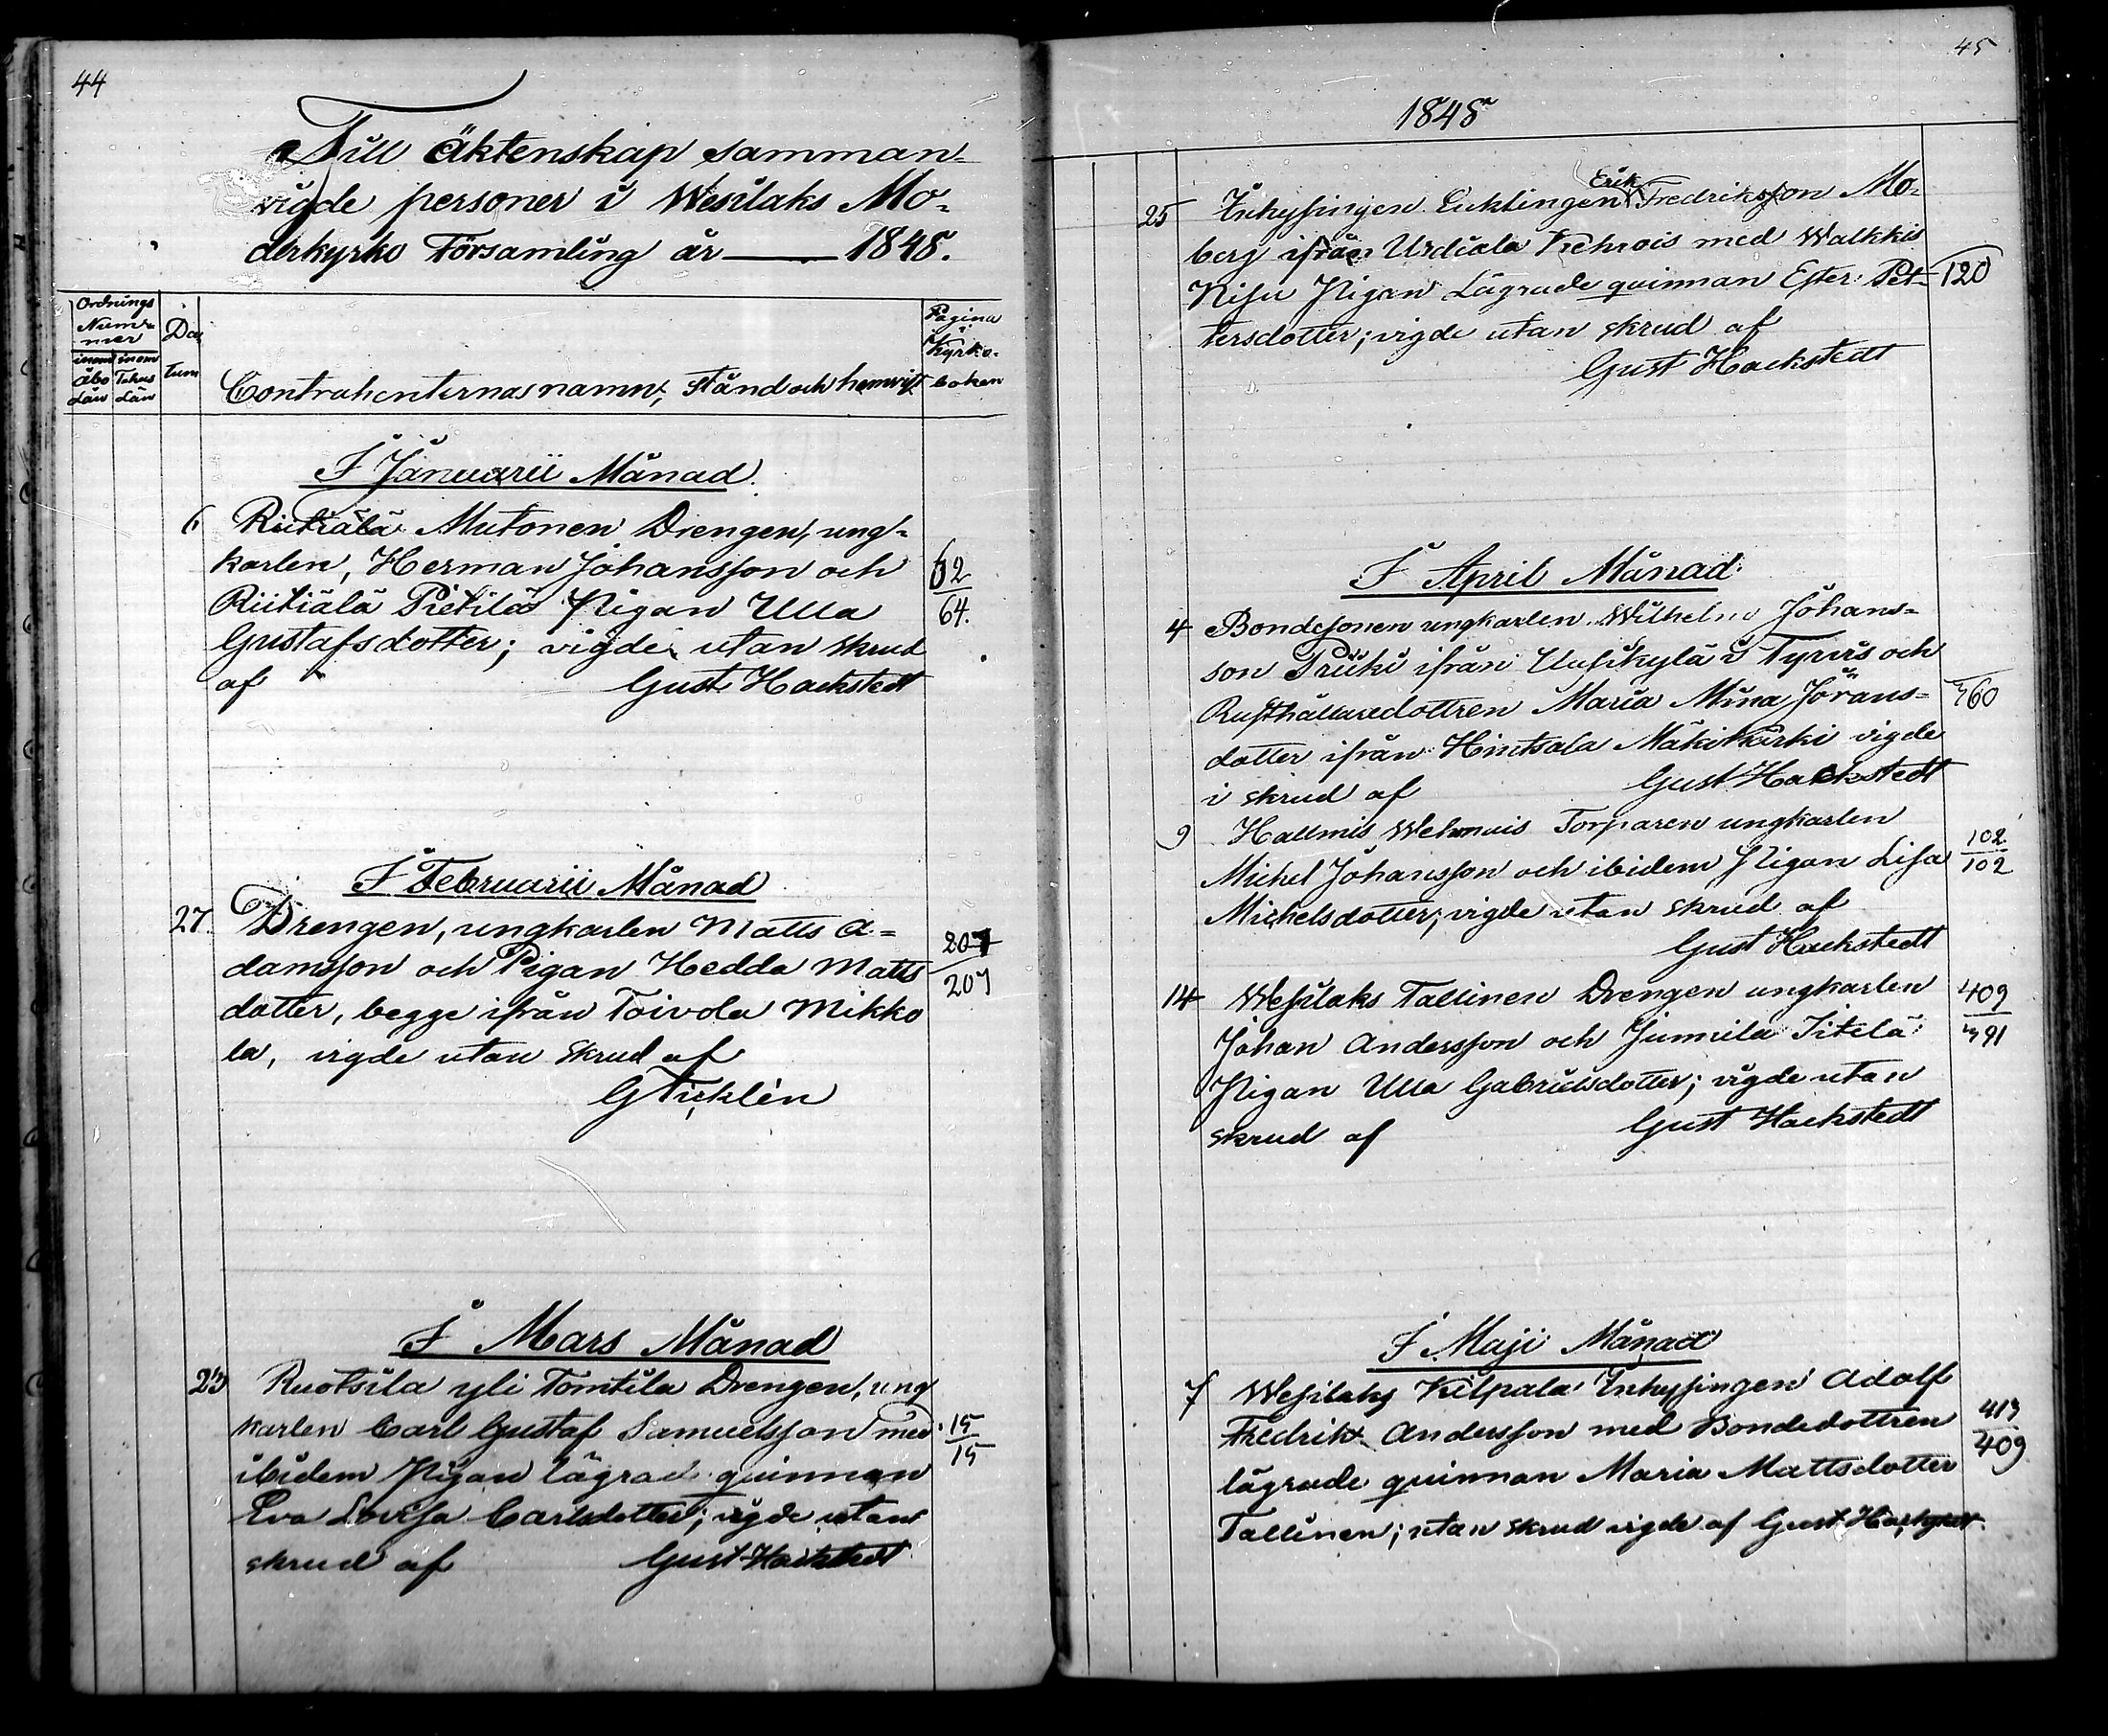 44
Till äktenskap samman-
vigde personer i Wesilaks Mo-
derkyrko Församling år — 1848.
Ordnings Num- mer
inom Åbo Län
inom Tehus Län
Da, tum
Contrahenternas namn, stånd och hemvist
Pagina i Kyrko- boken
I Januarii Månad.
6 Riitiälä Mutonen Drengen, ung-
karlen, Herman Johansson och 62
Riitiälä Pietilä Pigan Ulla 64.
Gustafsdotter; vigde utan skrud
af Gust Hackstedt
I Februarii Månad
27. Drengen, ungkarlen Matts A-
damsson och Pigan Hedda Matts 207
dotter, begge ifrån Toivola Mikko 207
la, vigde utan skrud af
G Ticklén
I Mars Månad
23 Ruotsila yli Tomtila Drengen, ung
karlen Carl Gustaf Samuelsson med 15
ibidem Pigan lägrade quinnan 15
Eva Lovisa Carlsdotter; vigde utan
skrud af Gust Hackstedt
45
1848
25 Inhysingen Enklingen Erik Fredriksson Mo-
berg ifrån Urdiala med Walkkis
Nisu Pigan Lägrade quinnan Ester Pet- 120
tersdotter; vigde utan skrud af
Gust Hackstedt
I April Månad
4 Bondesonen ungkarlen Wilhelm Johans-
son Priiki ifrån i Tyrvis och
Rusthållaredottren Maria Mina Jörans- 360
dotter ifrån Hintsala Mäkikärki vigde
i skrud af Gust Hackstedt
9 Hallmis Wehmais Torparen ungkarlen
Michel Johansson och ibidem Pigan Lisa 102
102
Michelsdotter; vigde utan skrud af
Gust Hackstedt
14 Wesilaks Tallinen Drengen ungkarlen 409
Johan Andersson och Jumila Pigan Ulla Gabrielsdotter; vigde utan
skrud af Gust Hackstedt
I Maji Månad
7 Wesilaks Kilpala Inhysingen Adolf
Fredrik Andersson med Bondedottren 413
lägrade quinnan Maria Mattsdotter 409
Tallinen; utan skrud vigde af Gust Hackstedt.